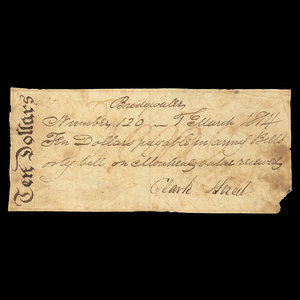 Ten Dollars
Bridgwater
Number 120 — 7 March 1814
Ten Dollars payable in army Bills
only bill on Montreal value received
Clark